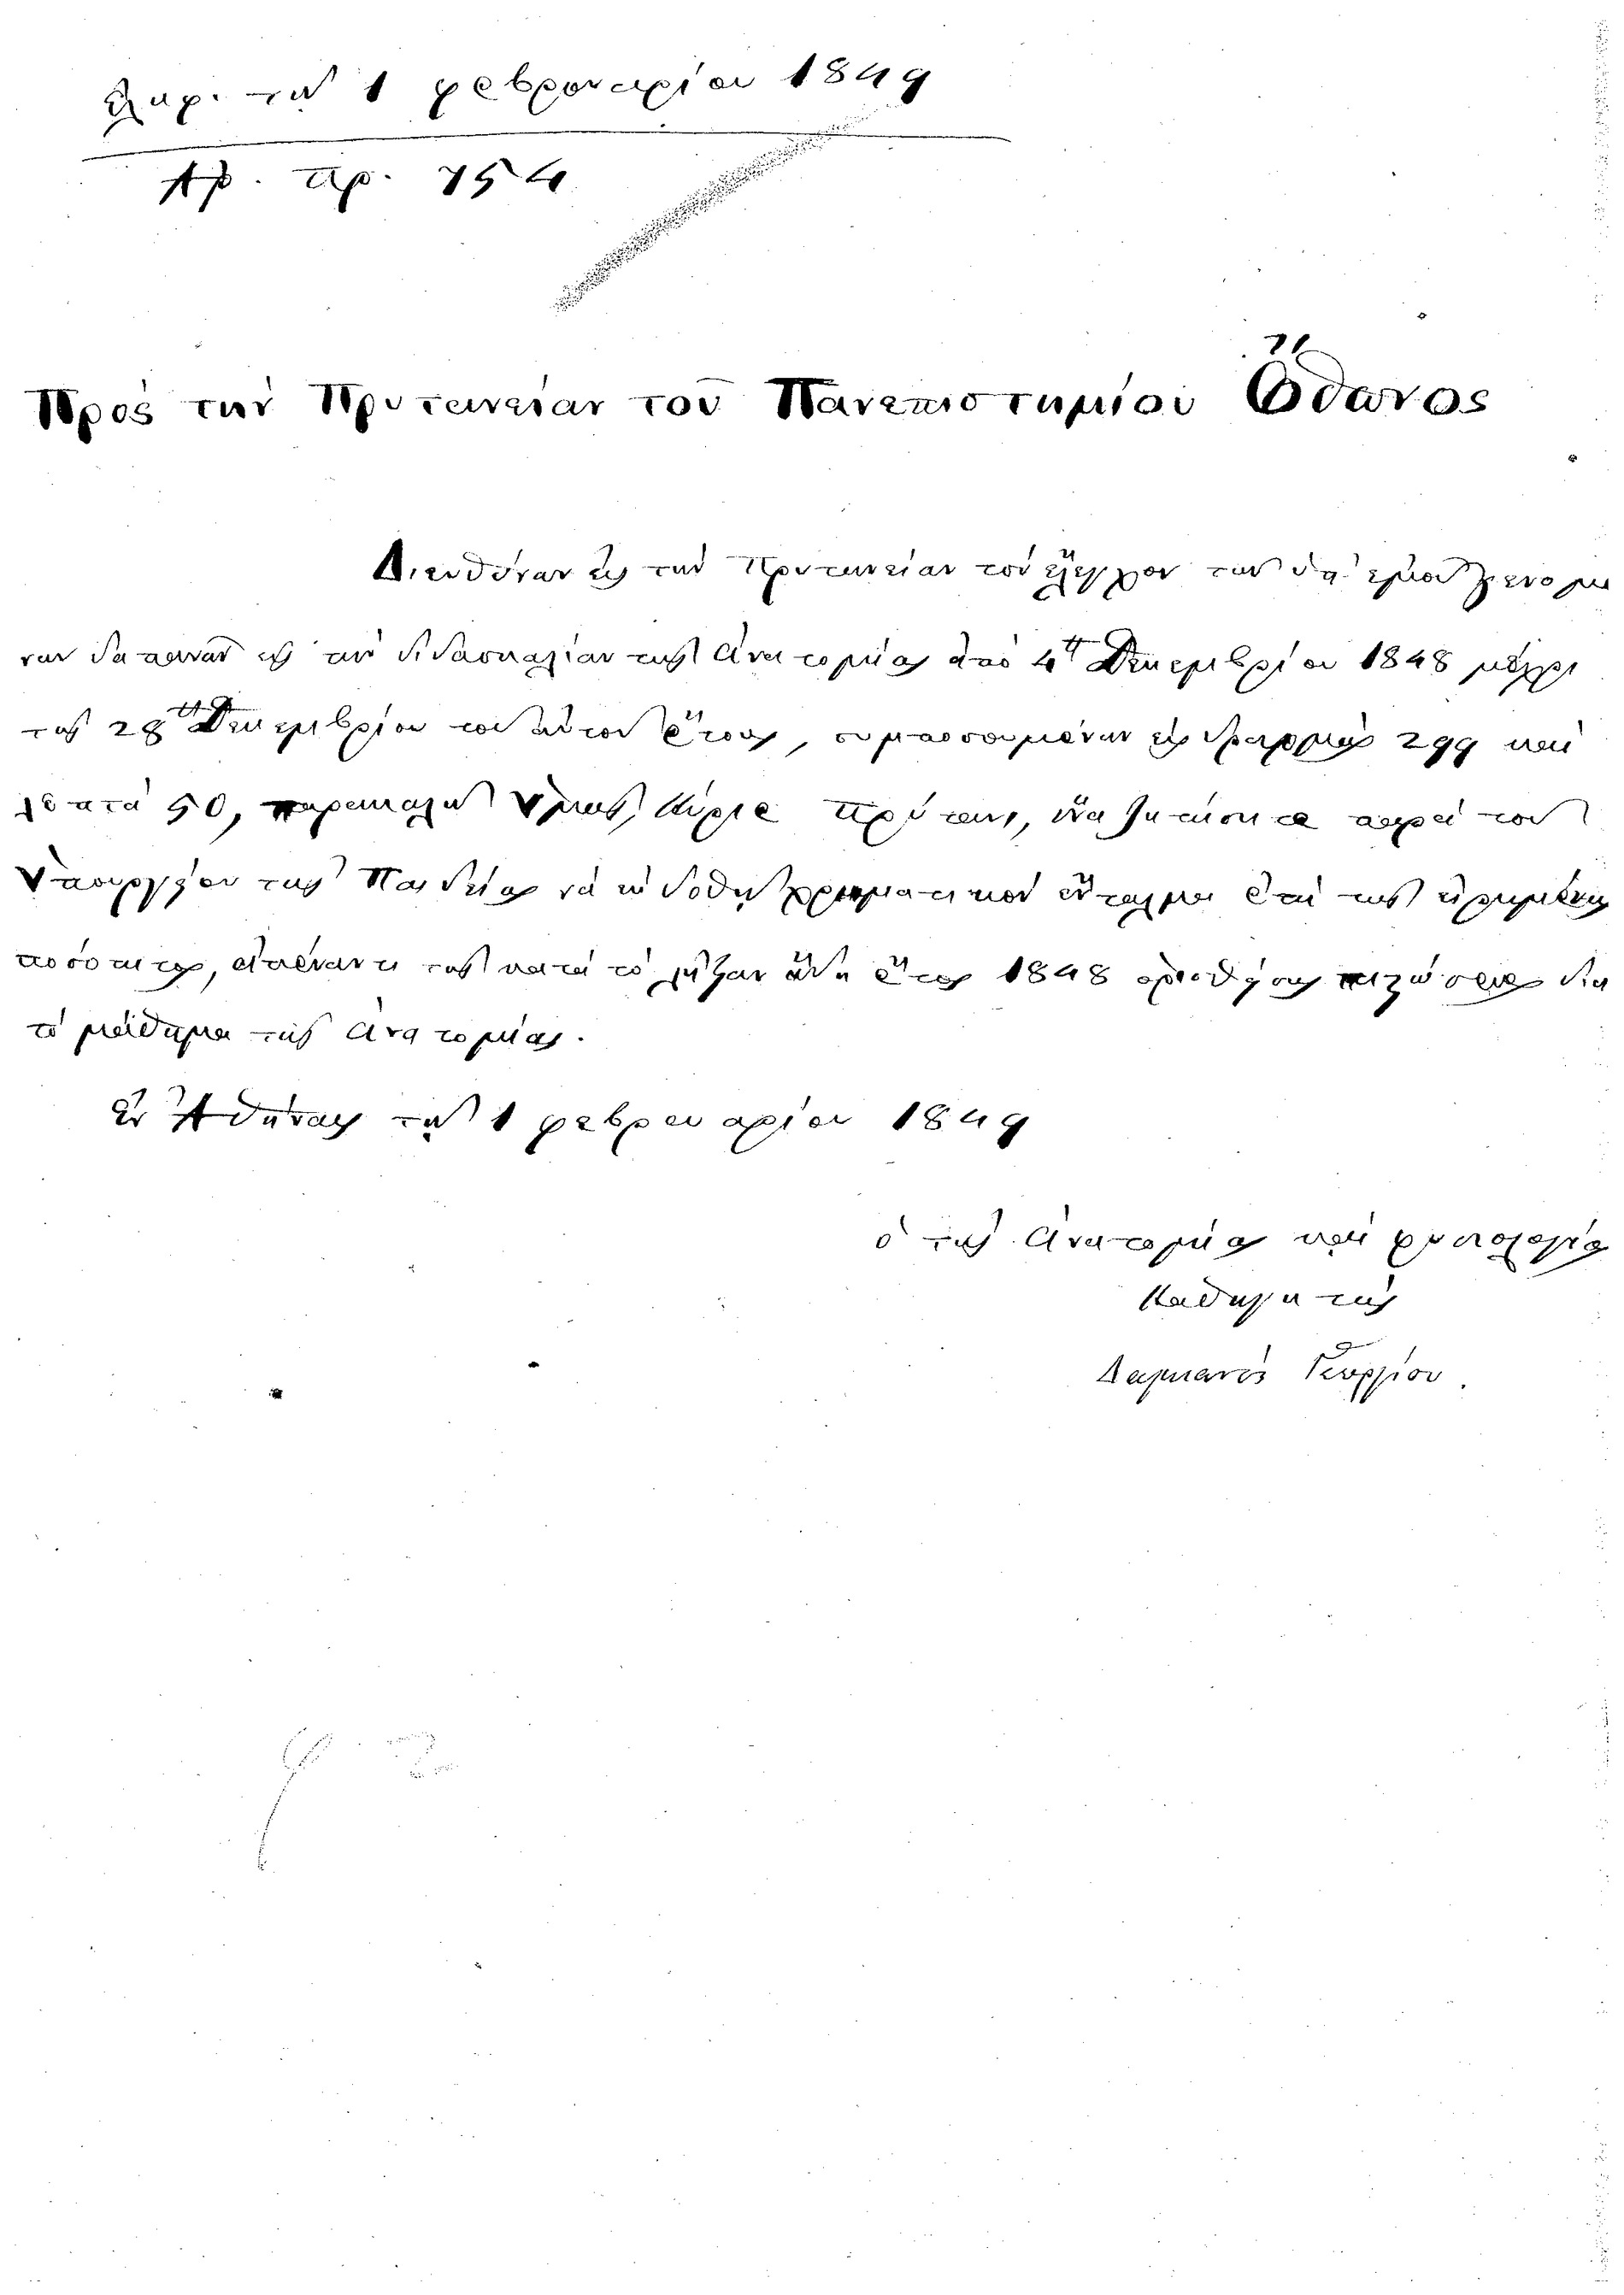 ἐλήφ. τῇ 1 φεβρουαρίου 1849
Ἀρ. πρ. 754
Πρὸς τὴν Πρυτανείαν τοῦ Πανεπιστημίου Ὄθωνος
Διευθύνων εἰς τὴν Πρυτανείαν τὸν ἔλεγχον τῶν δι' ἐμοῦ γενομέ
νων δαπανῶν εἰς τὴν διδασκαλίαν τῆς Ἀνατομίας ἀπὸ 4ης Δεκεμβρίου 1848 μέχρι
τῆς 28ης Δεκεμβρίου τοῦ αὐτοῦ ἔτους, συμποσουμένων εἰς δραχμὰς 299 καὶ
λεπτὰ 50, παρακαλῶ Ὑμᾶς, Κύριε Πρύτανι, ἵνα ζητήσητε παρὰ τοῦ
Ὑπουργείου τῆς Παιδείας νὰ ἐκδοθῇ χρηματικὸν ἔνταλμα ἐπὶ τῆς εἰρημένης
ποσότητος, ἀπέναντι τῆς κατὰ τὸ λῆξαν ἤδη ἔτος 1848 ὁρισθείσης πιστώσεως διὰ
τὸ μάθημα τῆς Ἀνατομίας.
Ἐν Ἀθήναις τῇ 1 φεβρουαρίου 1849
ὁ τῆς Ἀνατομίας καὶ φυσιολογίας
Καθηγητὴς
Δαμιανὸς Γεωργίου.